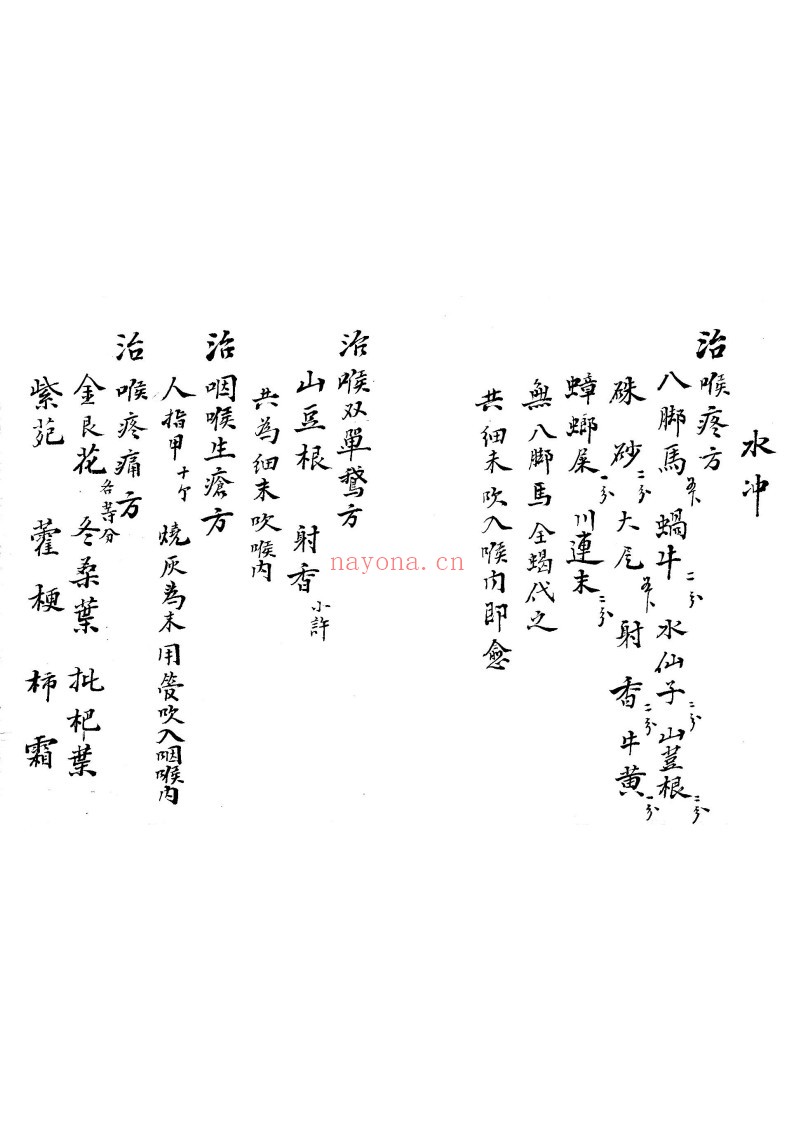 水沖
治喉疼方
八脚馬 蝸牛 二分 水仙子 二分 山荳根 二分
硃砂 二分 大 射香 二分 牛黄 一分
蟑螂屎 一分 川連末 二分
無八脚馬全蝎代之
共細末吹入喉内即愈
治喉双單鵞方
山豆根 射香 小許
共為細末吹喉内
治咽喉生瘡方
人指甲 十个 燒灰為末用管吹入咽喉内
治喉疼痛方
金艮花 各等分 冬桑葉 批杷葉
紫苑 藿梗 柿霜
nayona.cn